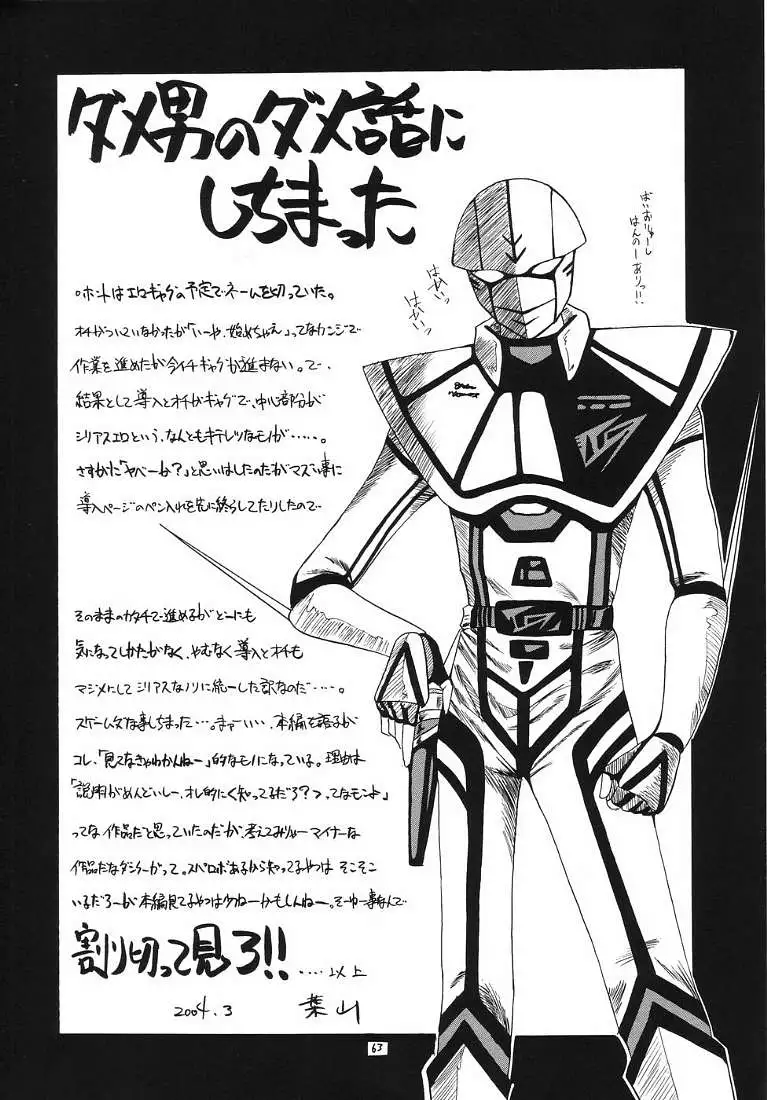 ダメ男のダメ話に
しちまった
ばいおりゅーし
はんのーありっ!!
はいっ
はいっ
ホントはエロギャグの予定でネームを切っていた。
オチがついていなかったが「いーや、始めちゃえ」ってなカンジで
作業を進めたが今イチギャグが進まない。で、
結果として導入とオチがギャグで、中心部分が
シリアスエロという、なんともキテレツなモノが……。
さすがに「ヤベーか?」と思いはしたのだがマズい事に
導入ページのペン入れを先に終らしてたりしたので
そのままのカタチで進めるがどーにも
気になってしかたがなく、やむなく導入とオチも
マジメにしてシリアスなノリに統一した訳なのだ……。
スゲームダな事しちまった…。まぁーいい、本編を語るが
コレ、「見てなきゃわかんねー」的なモノになっている。理由は
「説明がめんどいしー、オレ的にく知ってるだろ?>ってなモンよ」
ってな作品だと思っていたのだが、考えてみりゃーマイナーな
作品だなダンクーガって。スパロボあるから知ってるやつはそこそこ
いるだろーが本編見てるやつは少ねーかもしんねー。そーゆー事なんで
割り切って見ろ!!……以上
2004.3 葉山
63